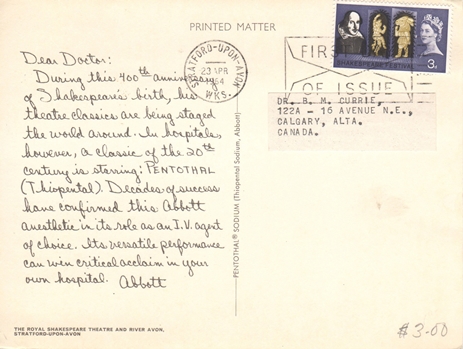 PRINTED MATTER
Dear Doctor:
During this 400th anniversary
of Shakespeare's birth, his
theatre classics are being staged
the world around. In hospitals,
however, a classic of the 20th
century is starring: PENTOTHAL
(Thiopental). Decades of success
have confirmed this Abbott
anesthetic in its role as an I.V. agent
of choice. Its versatile performance
can win critical acclaim in your
own hospital. Abbott
THE ROYAL SHAKESPEARE THEATRE AND RIVER AVON,
STRATFORD-UPON-AVON
PENTOTHAL® SODIUM (Thiopental Sodium, Abbott)
STRATFORD-UPON-AVON
23 APR
1964
WKS.
FIRST
OF ISSUE
SHAKESPEARE FESTIVAL
3D
DR. B. M. CURRIE,
122A - 16 AVENUE N.E.,
CALGARY, ALTA.
CANADA.
$3.00